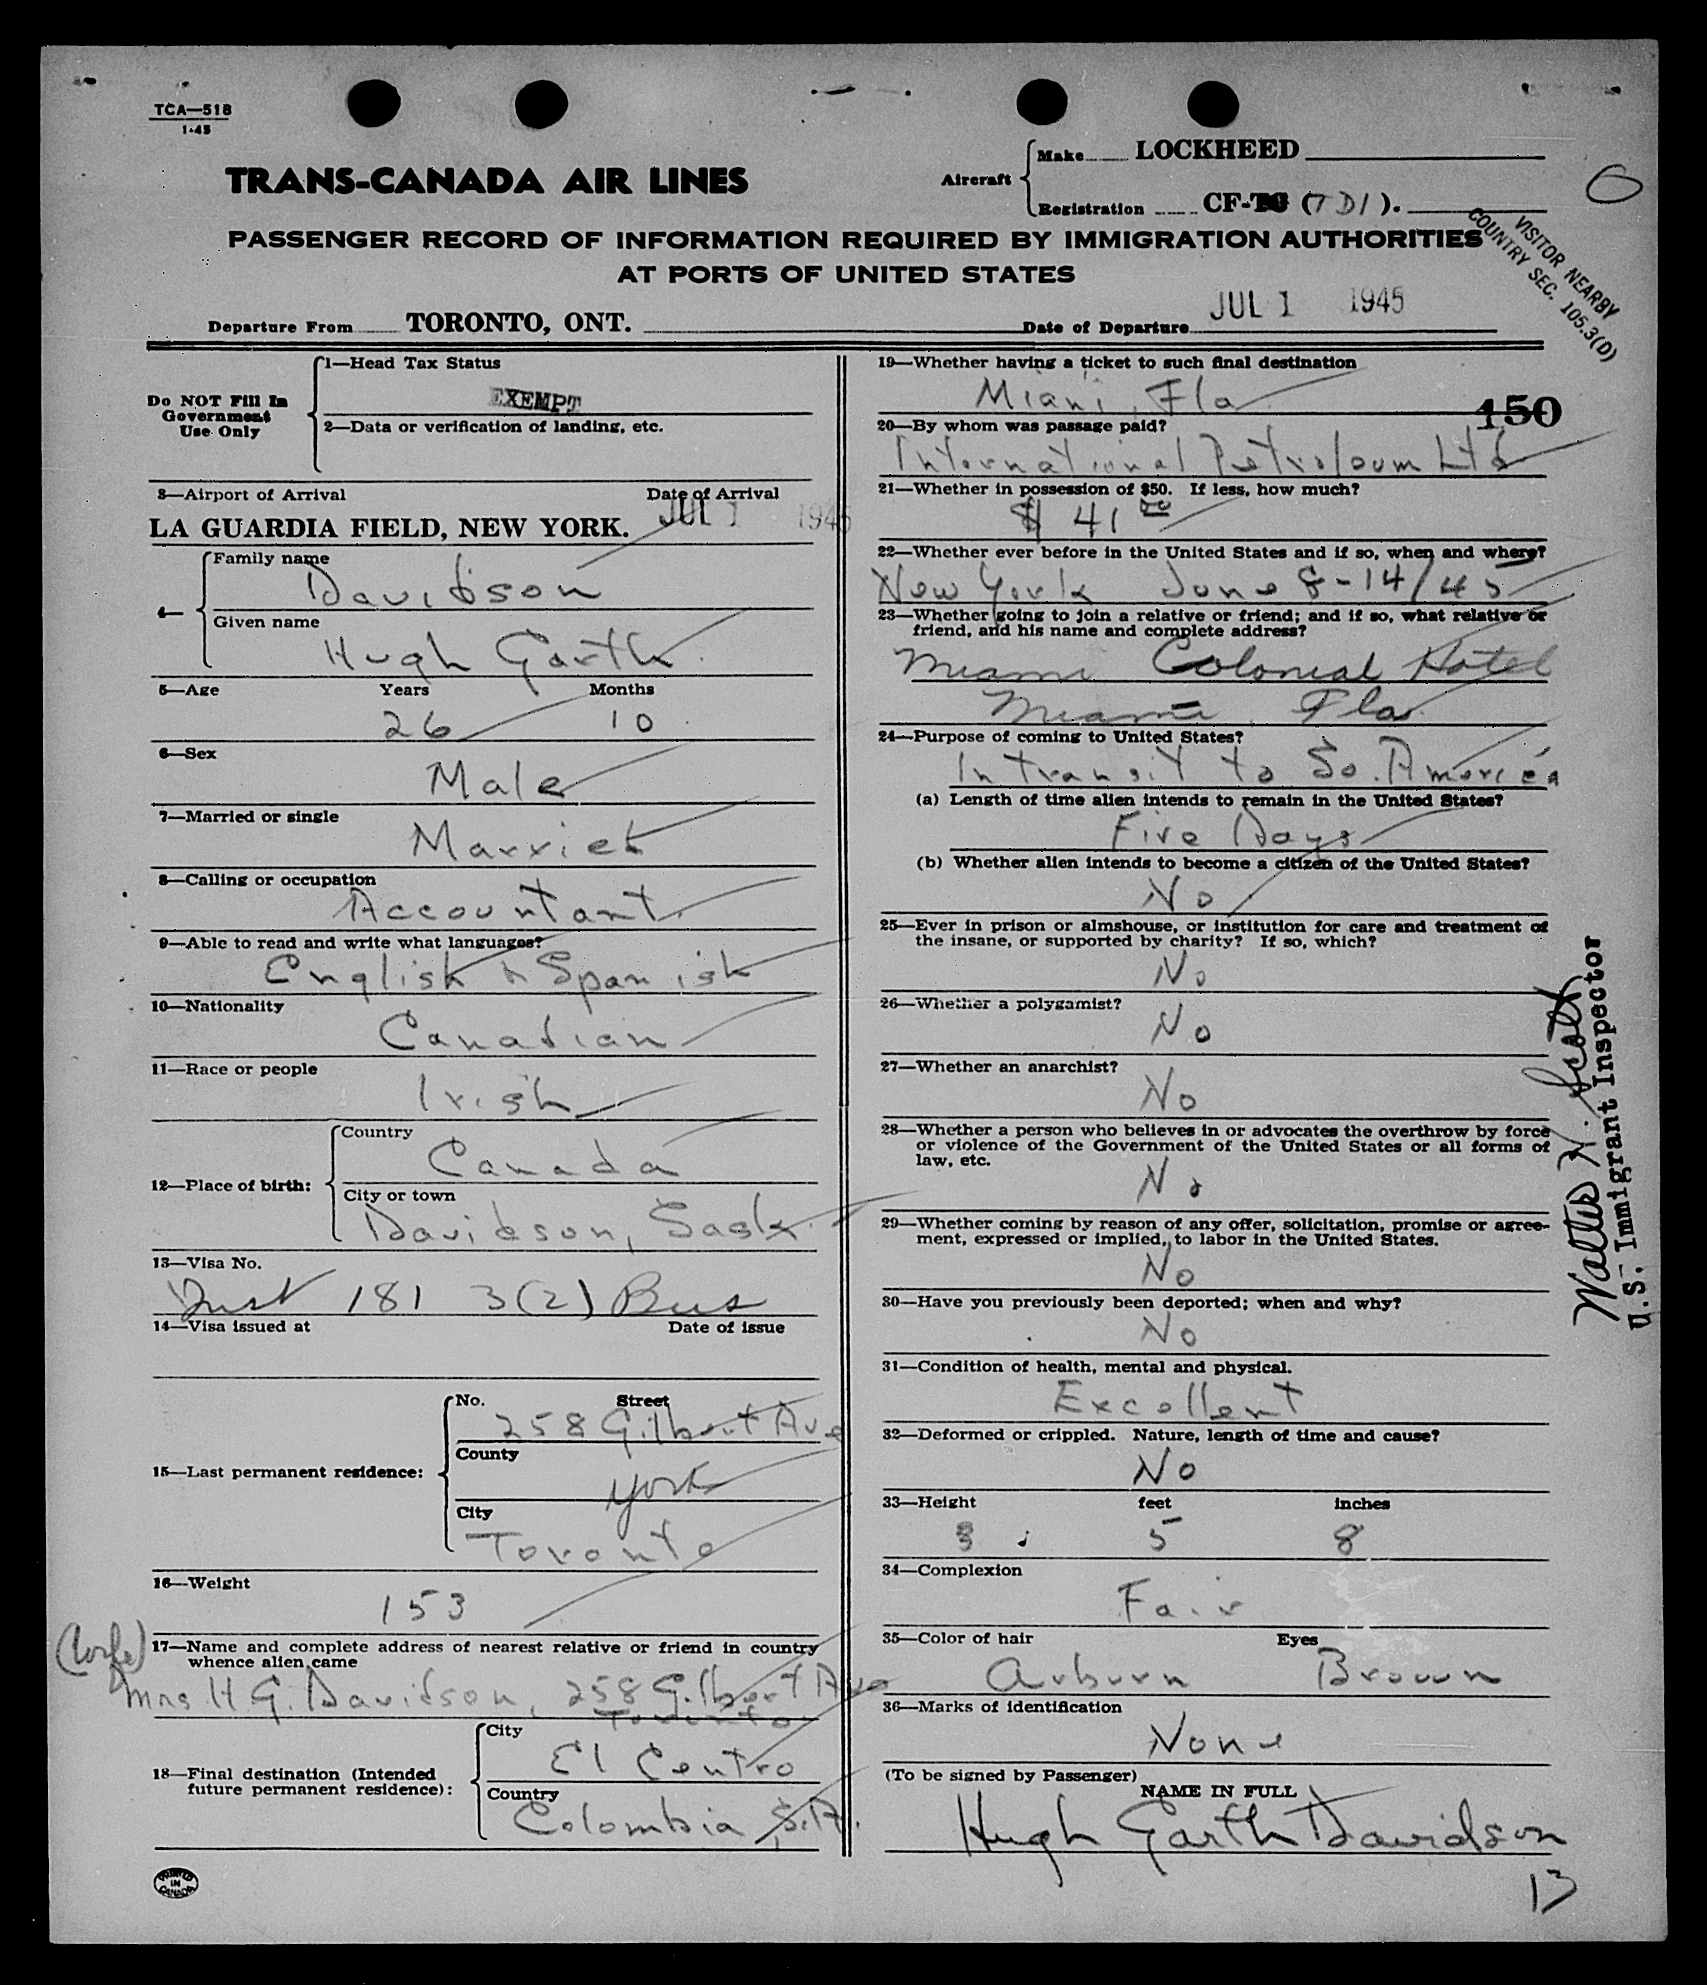 TCA—518
1-45
TRANS-CANADA AIR LINES
Aircraft
Make LOCKHEED
Registration CF-TC (TDI).
PASSENGER RECORD OF INFORMATION REQUIRED BY IMMIGRATION AUTHORITIES
AT PORTS OF UNITED STATES
VISITOR NEARBY
COUNTRY SEC. 105.3(D)
Departure From TORONTO, ONT. Date of Departure JUL 1 1945
Do NOT Fill In
Government
Use Only
1—Head Tax Status
EXEMPT
2—Data or verification of landing, etc.
3—Airport of Arrival Date of Arrival
LA GUARDIA FIELD, NEW YORK. JUL 1 1945
4—
Family name
Davidson
Given name
Hugh Garth
5—Age Years Months
26 10
6—Sex
Male
7—Married or single
Married
8—Calling or occupation
Accountant
9—Able to read and write what languages?
English & Spanish
10—Nationality
Canadian
11—Race or people
Irish
12—Place of birth:
Country
Canada
City or town
Davidson, Sask.
13—Visa No.
181 3(2) Bus
14—Visa issued at Date of issue
15—Last permanent residence:
No. Street
258 Gilbert Ave
County
York
City
Toronto
16—Weight
153
(Wife)
17—Name and complete address of nearest relative or friend in country
whence alien came
Mrs H G. Davidson, 258 Gilbert Ave
Toronto
18—Final destination (Intended
future permanent residence):
City
El Centro
Country
Colombia S.A.
PRINTED
IN
CANADA
19—Whether having a ticket to such final destination
Miami, Fla
150
20—By whom was passage paid?
International Petroleum Ltd
21—Whether in possession of $50. If less, how much?
$ 41 00
22—Whether ever before in the United States and if so, when and where?
New York June 8-14/45
23—Whether going to join a relative or friend; and if so, what relative or
friend, and his name and complete address?
Miami Colonial Hotel
Miami Fla.
24—Purpose of coming to United States?
In transit to So. America
(a) Length of time alien intends to remain in the United States?
Five Days
(b) Whether alien intends to become a citizen of the United States?
No
25—Ever in prison or almshouse, or institution for care and treatment of
the insane, or supported by charity? If so, which?
No
26—Whether a polygamist?
No
27—Whether an anarchist?
No
28—Whether a person who believes in or advocates the overthrow by force
or violence of the Government of the United States or all forms of
law, etc.
No
29—Whether coming by reason of any offer, solicitation, promise or agree-
ment, expressed or implied, to labor in the United States.
No
30—Have you previously been deported; when and why?
No
31—Condition of health, mental and physical.
Excellent
32—Deformed or crippled. Nature, length of time and cause?
No
33—Height feet inches
5 8
34—Complexion
Fair
35—Color of hair Eyes
Auburn Brown
36—Marks of identification
None
(To be signed by Passenger)
NAME IN FULL
Hugh Garth Davidson
13
Walter N. Scott
U.S. Immigrant Inspector